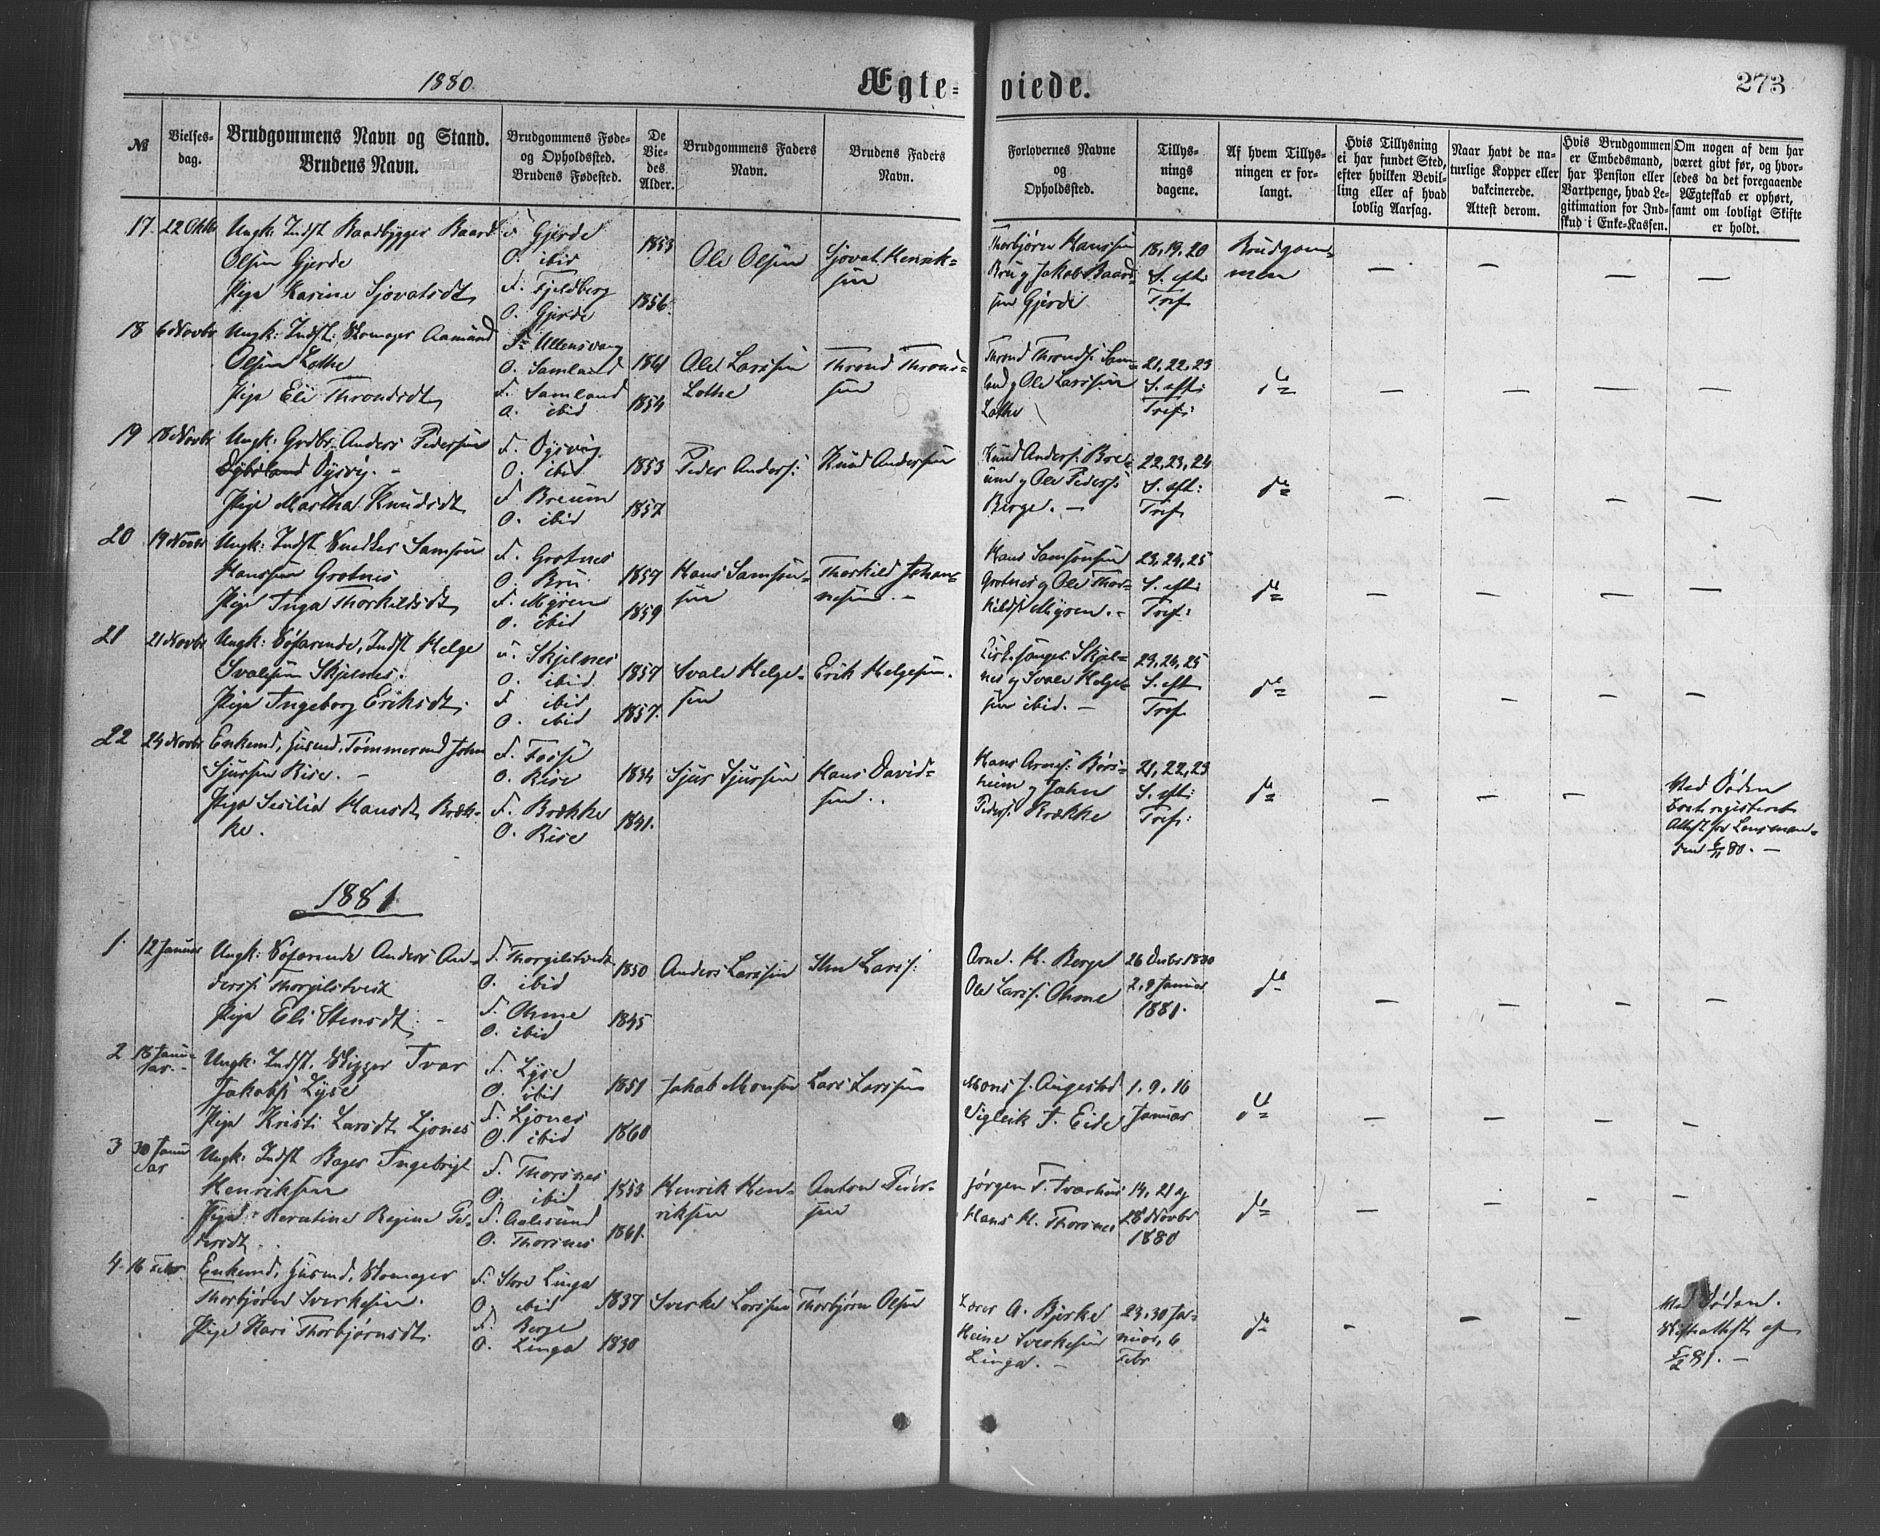 1880.
Ægte-
viede.
273
№
Vielses-
dag.
Brudgommens Navn og Stand.
Brudens Navn.
Brudgommens Føde-
og Opholdssted.
Brudens Fødested.
De
Vie-
des
Alder.
Brudgommens Faders
Navn.
Brudens Faders
Navn.
Forlovernes Navne
og
Opholdssted.
Tillys-
nings
dagene.
Af hvem Tillys-
ningen er for-
langt.
Hvis Tillysning
ei har fundet Sted,
efter hvilken Bevil-
ling eller af hvad
lovlig Aarsag.
Naar havt de na-
turlige Kopper eller
vakcinerede.
Attest derom.
Hvis Brudgommen
er Embedsmand,
har Pension eller
Vartpenge, hvad Le-
gitimation for Ind-
skud i Enke-Kassen.
Om nogen af dem har
været givt før, og hvor-
ledes da det foregaaende
Ægteskab er ophørt,
samt om lovligt Skifte
er holdt.
17 22 Oktbr Ungk: Indst Baadbygger Baard
Olsen Gjerde
Pige Karine Sjovatsdt,
F. Gjerde
O. ibid
F. Fjeldberg
O. Gjerde
1853
1856.
Ole Olsen
Sjovat Henrik-
sen
Thorbjørn Hanssen
Bru og Jakob Baard-
sen Gjerde
18, 19, 20
S. eft:
Tref.
Brudgom-
men
18 6 Novbr Ungk: Indst: Skomager Aamund
Olsen Lothe
Pige Eli Throndsdt,
F. Ullensvang
O. Samland
F. Samland
O. ibid
1861
1854
Ole Larssen
Lothe
Thrond Thronds-
sen
Thrond Thronds: Sam-
land og Ole Larssen
Lothe
21, 22, 23
S. eft:
Tref:
do
19 18 Novbr Ungk: Grdbr. Anders Pedersen
Dysvig. -
Pige Martha Knudsdt,
F. Dysvig
O. ibid
F. Breum
O. ibid
1853
1857
Peder Anders:
Knud Anderssen
Knud Anders: Bre-
um og Ole Peders:
Berge. -
22, 23, 24
S. eft:
Tref.
do
20 19 Novbr Ungk: Indst Snedker Samson
Hanssen Grotnes
Pige Inga Thorkildsdt,
F. Grotnes
O. Bru
F. Myren
O. ibid
1859
1859
Hans Samson-
sen
Thorkild Johan-
nesen. -
Hans Samsonsen
Grotnes og Ole Thor-
kilds: Myren. -
23, 24, 25
S. eft:
Tref:
do
21 21 Novbr Ungk: Søfarende, Indst Helge
Svalesen Skjelnes.
Pige Ingeborg Eriksdt,
F. Skjelnes
O. ibid
F. ibid
O. ibid
1857
1857.
Svale Helge-
sen
Erik Helgesen.
Kirkesanger Skjel-
nes og Svale Helge-
sen ibid. -
23, 24, 25
S. eft
Tref.
do
22 24 Novbr Enkemd, Husmd, Tømmermd John
Sjurssen Rise. -
Pige Sesilia Hansdt, Bræk-
ke.
F. Fosse
O. Rise
F. Brække
O. Rise
1834
1841.
Sjur Sjurssen
Hans David-
sen.
Hans Arnes: Børs-
heim og John
Peders: Brække
21, 22, 23
S. eft:
Tref:
do
Ved Døden
Boet registeret
Attest fra Lensman-
den 6/11 80. -
1881
1. 12 Januar Ungk: Søfarende Anders An-
derss: Thorgilstveit
Pige Eli Stensdt,
F. Thorgilstveit
O. ibid
F. Ohme
O. ibid
1850
1845
Anders Larssen
Sten Larss:
Arne H. Berge
Ole Larss: Ohme
26 Decbr 1880
2, 9 Januar
1881.
do
2 18 Janu-
ar. Ungk: Indst. Skipper Ivar
Jakobs: Lyse
Pige Kristi Larsdt, Ljones
F. Lyse
O. ibid
F. Ljones
O. ibid
1851
1860
Jakob Monsen
Lars Larssen
Mons J. Augestad
Vigleik T. Eide
1, 9, 16
Januar
do
3 30 Janu-
ar Ungk: Indst Bager Ingebrigt
Henriksen
Pige: Kerstine Regine Pe-
dersdt.
F. Thorsnes
O. ibid
F. Aalesund
O. Thorsnes
1853
1861.
Henrik Hen-
riksen
Anton Peder-
sen
Jørgen T. Tvarhus
Hans H. Thorsnes
14, 21 og
28 Novbr
1880
do
4. 16 Febr. Enkemd, Husmd, Skomager
Thorbjørn Sverkesen.
Pige Kari Thorbjørnsdt.
F. Store Linga
O. ibid
F. Berge
O. Linga
1837
1830
Sverke Larssen
Thorbjørn Olsen
Lærer A. Bjerke
Heine Sverkesen
Linga. -
23, 30 Ja-
nuar, 6
Febr
do
Ved Døden.
Skifteattest af
5/2 81. -